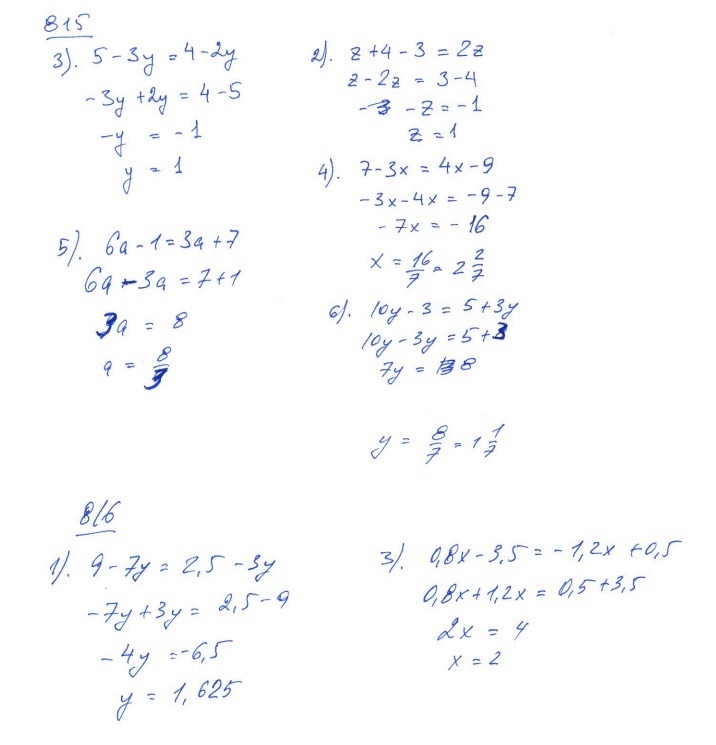 815
3). 5 - 3y = 4 - 2y
-3y + 2y = 4 - 5
-y = -1
y = 1
2). z + 4 - 3 = 2z
z - 2z = 3 - 4
-z = -1
z = 1
4). 7 - 3x = 4x - 9
-3x - 4x = -9 - 7
-7x = -16
x = 16/7 = 2 2/7
5). 6a - 1 = 3a + 7
6a - 3a = 7 + 1
3a = 8
a = 8/3
6). 10y - 3 = 5 + 3y
10y - 3y = 5 + 3
7y = 8
y = 8/7 = 1 1/7
816
1). 9 - 7y = 2,5 - 3y
-7y + 3y = 2,5 - 9
-4y = -6,5
y = 1,625
3). 0,8x - 3,5 = -1,2x + 0,5
0,8x + 1,2x = 0,5 + 3,5
2x = 4
x = 2